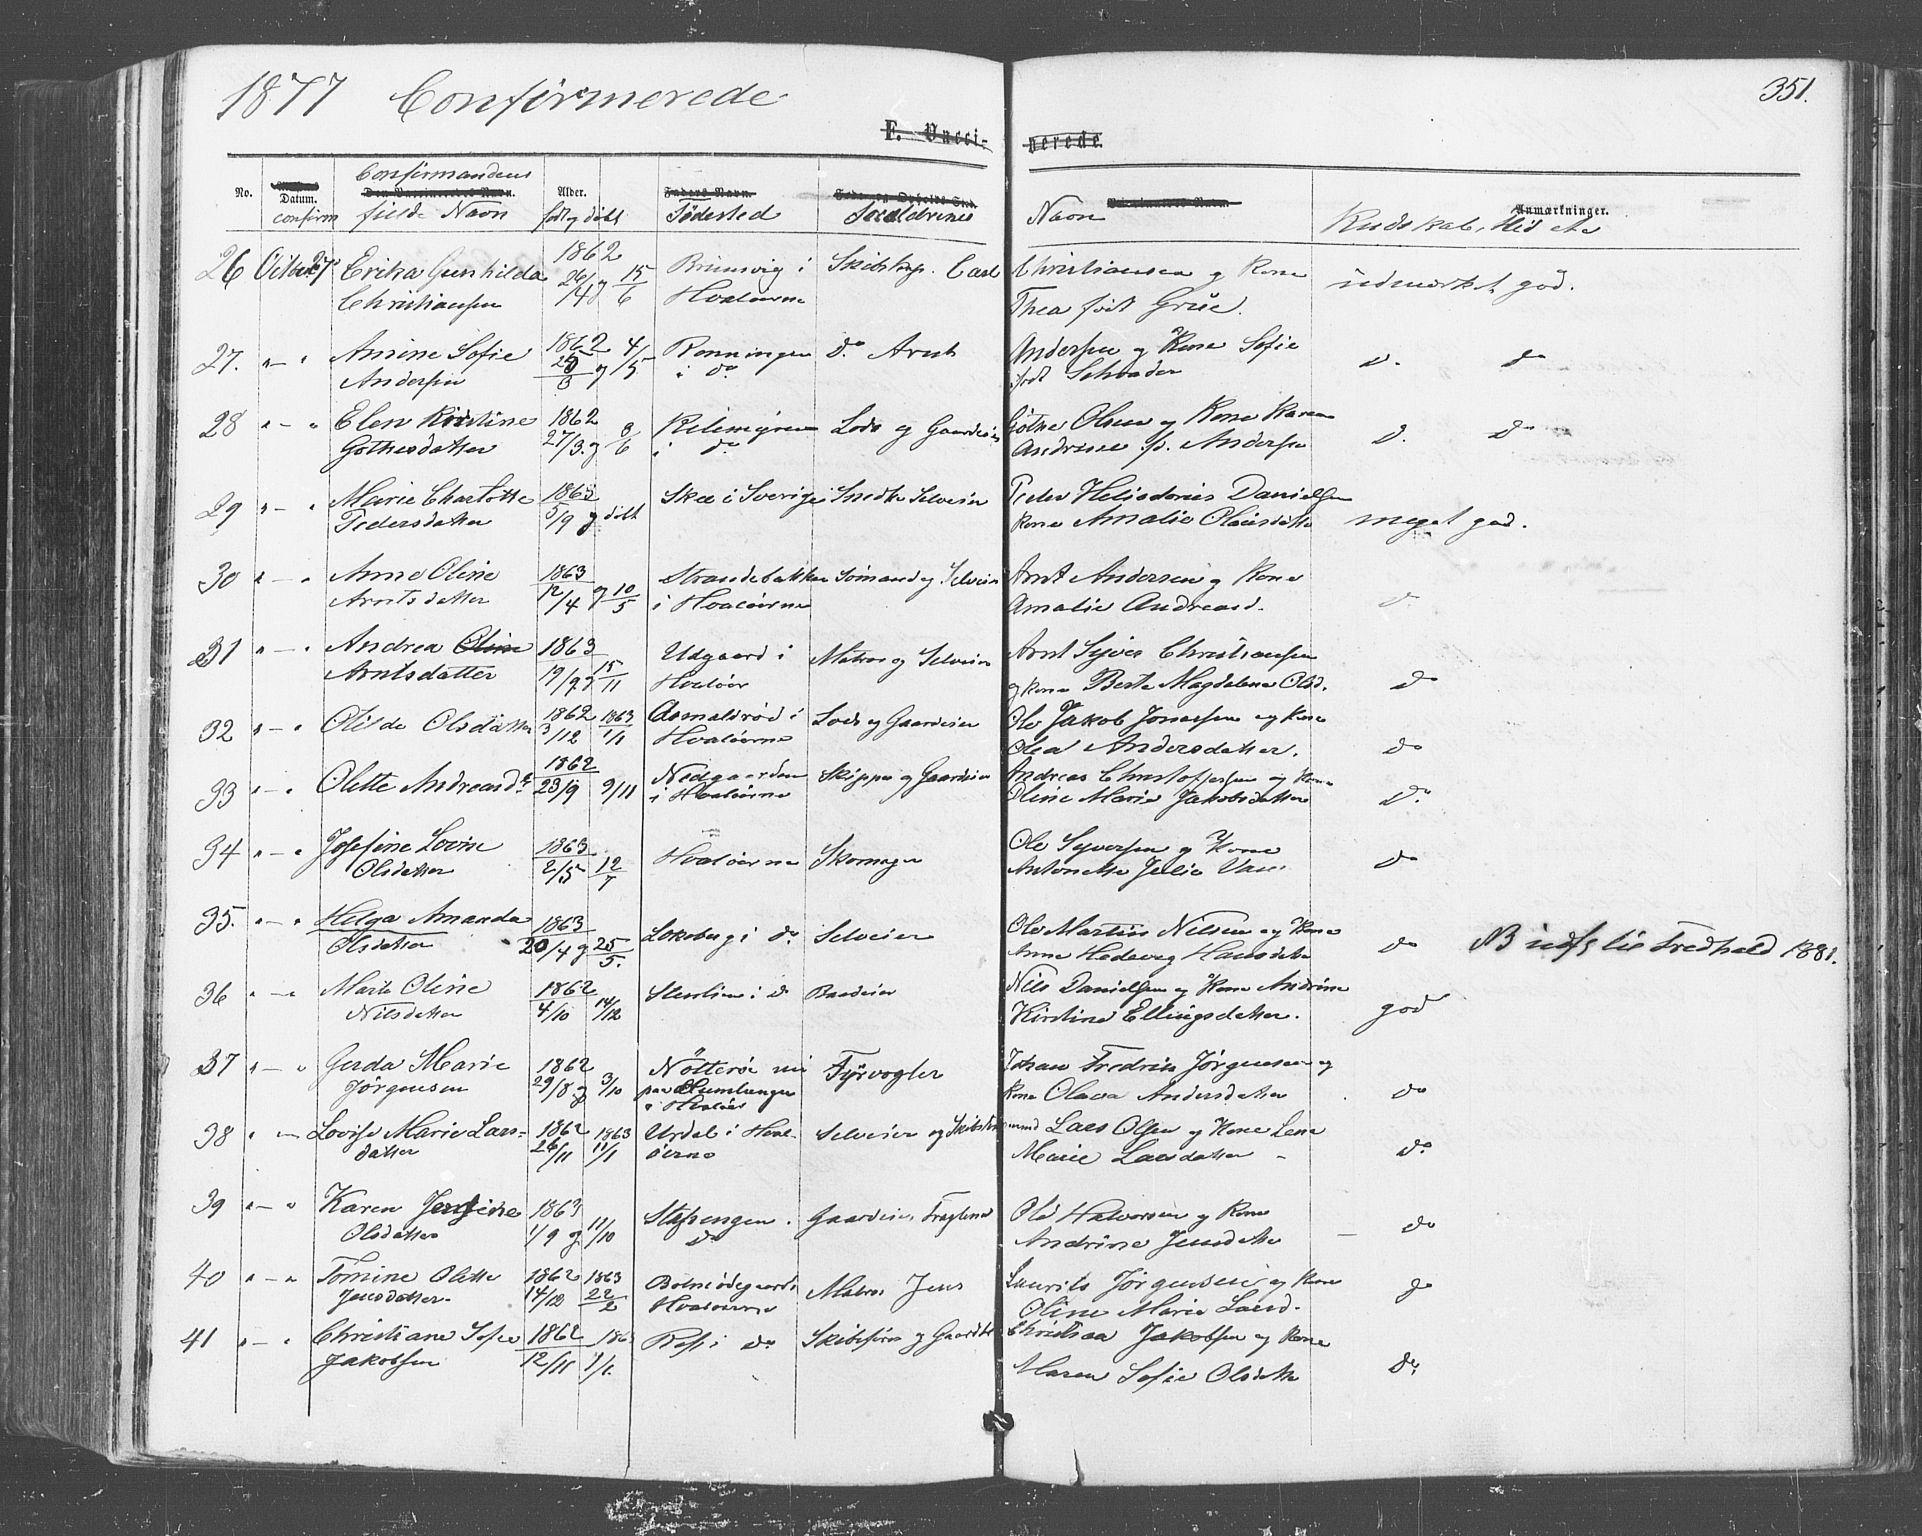 1877 Confirmerede
351.
F. Vacci-
nerede.
Confirmandens
No. Datum. Alder.
confirm fulde Navn født og døbt Fødested Forældrenes Navn Kundskab, Flid etc Anmærkninger.
26 Octbr 7 Erika Gunhilda 1862 26/4 og 15/6 i Skibskap. Carl Christiansen og Kone udmærket god.
Christiansen Hvaløerne Thea født
27. " — " Sofie 1862 4/5 Rønningen do Arnt Andersen og Kone Sofie do do
Andersen i do født Schrøder
28 " — " Elen Kirstine 1862 27/3 og 3/6 Lods og Gaardeier Göthe Olsen og Kone Karen do do
Gøthesdatter i do f. Andersen
29 " — " Marie Charlotte 1863 5/9 og døbt Skee i Sverige Snedk Selveier Peder Heliodorius Danielsen
Pedersdatter Kone Amalie Olausdatter meget god.
30 " — " Anne Oline 1863 12/4 og 10/5 Strandebakken Sømand og Selveier Arnt Andersen og Kone
Arntsdatter i Hvaløerne Amalie Andreasd. do
31 " — " Andrea Oline 1863 19/9 og 15/11 Udgaard i Matros og Selveier Arnt Syver Christiansen
Arntsdatter Hvaløer og Kone Berte Magdalene Olsd. do
32 " — " Olsdatter 1862 3/12 1863 1/1 Asmaldrød i Lods og Gaardeier Ole Jakob og Kone
Hvaløerne Olea Andersdatter. do
33 " — " Olette Andreasd. 1862 23/9 9/11 Nedgaarden Skipper og Gaardeier Andreas Christoffersen og Kone
i Hvaløerne Oline Marie Jakobsdatter do
34 " — " Josefine Lovise 1863 2/5 12/7 Hvaløerne Skomager Ole Syversen og Kone
Olsdatter Antonette Julie do
35. " — " Helga Amanda 1863 20/4 og 25/5. i do Selveier Ole Martin Nilsen og Kone
Olsdatter Anne Hedevig Hansdatter do NB udfl til Fredhald 1881.
36 " — " Marte Oline 1862 4/10 14/12 i do Nils Danielsen og Kone Andrine
Nilsdatter Kirstine Ellingsdatter. god
37 " — " Gerda Marie 1862 29/8 og 3/10 Nötterö nu Fyrvogter Johan Fredrik Jørgensen og
Jørgensen paa i Hvaløer Kone Olava Andersdatter do
38 " — " Lovise Marie Lars- 1862 26/11 1863 11/1 Urdal i Hval- Selveier og Skibstømmermd Lars Olsen og Kone Lene
datter øerne Marie Larsdatter do
39 " — " Karen Josefine 1863 1/9 og 11/10 Stafsengen. Gaardeier, Ole Halvorsen og Kone
Olsdatter do Andrine Jensdatter do
40 " — " Tomine Olette 1862 14/12 1863 22/2 Matros Jens Laurits Jørgensen og Kone
Jensdatter Hvaløerne Oline Marie Larsd. do
41 " — " Christiane Sofie 1862 12/11 1863 1/1. i do Skibsfører og Christian Jakobsen og Kone
Jakobsen Maren Sofie Olsdatter do